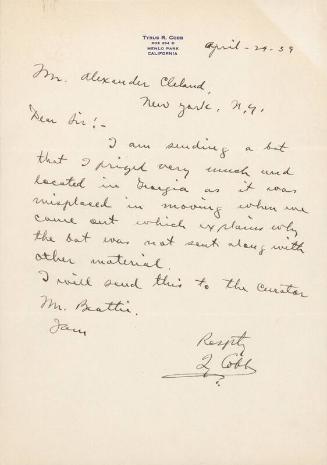 Tyrus R. Cobb
Menlo Park
California
April-24-39
Mr. Alexander Cleland,
New York, N.Y.
Dear Sir:-
I am sending a bat
that I prized very much and
located in Georgia as it was
misplaced in moving when we
came out which explains why
the bat was not sent along with
other material.
I will send this to the curator
Mr. Beattie.
I am
Respty
Ty Cobb